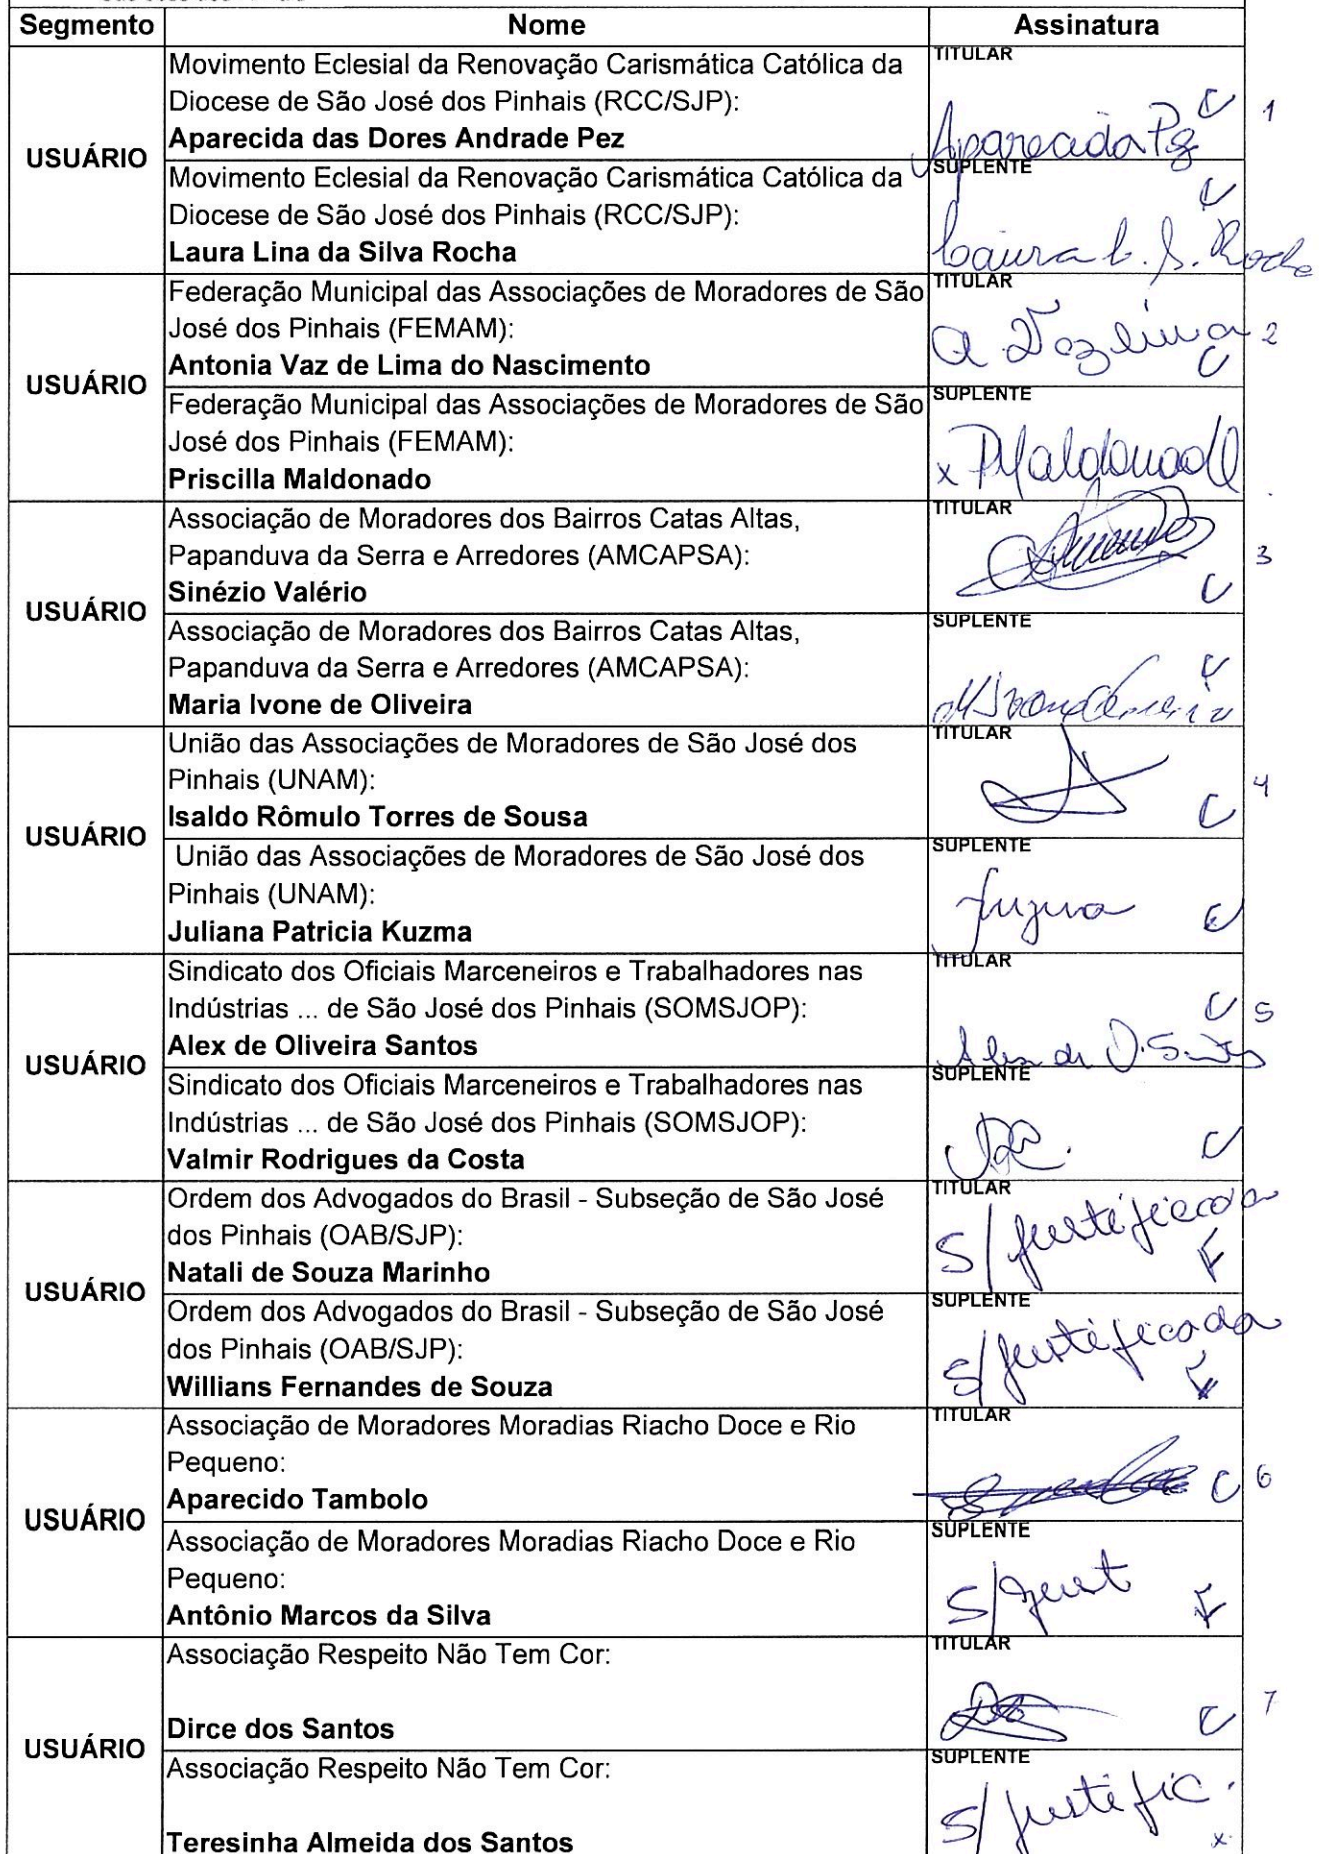 Segmento Nome Assinatura
USUÁRIO
Movimento Eclesial da Renovação Carismática Católica da
Diocese de São José dos Pinhais (RCC/SJP):
Aparecida das Dores Andrade Pez
TITULAR
Aparecida Pez
C
1
Movimento Eclesial da Renovação Carismática Católica da
Diocese de São José dos Pinhais (RCC/SJP):
Laura Lina da Silva Rocha
SUPLENTE
C
Laura L. S. Rocha
USUÁRIO
Federação Municipal das Associações de Moradores de São
José dos Pinhais (FEMAM):
Antonia Vaz de Lima do Nascimento
TITULAR
a Vaz lima
C
2
Federação Municipal das Associações de Moradores de São
José dos Pinhais (FEMAM):
Priscilla Maldonado
SUPLENTE
x PMaldonado
USUÁRIO
Associação de Moradores dos Bairros Catas Altas,
Papanduva da Serra e Arredores (AMCAPSA):
Sinézio Valério
TITULAR
C
3
Associação de Moradores dos Bairros Catas Altas,
Papanduva da Serra e Arredores (AMCAPSA):
Maria Ivone de Oliveira
SUPLENTE
C
USUÁRIO
União das Associações de Moradores de São José dos
Pinhais (UNAM):
Isaldo Rômulo Torres de Sousa
TITULAR
C
4
União das Associações de Moradores de São José dos
Pinhais (UNAM):
Juliana Patricia Kuzma
SUPLENTE
C
USUÁRIO
Sindicato dos Oficiais Marceneiros e Trabalhadores nas
Indústrias ... de São José dos Pinhais (SOMSJOP):
Alex de Oliveira Santos
TITULAR
C
5
Alex de O. Santos
Sindicato dos Oficiais Marceneiros e Trabalhadores nas
Indústrias ... de São José dos Pinhais (SOMSJOP):
Valmir Rodrigues da Costa
SUPLENTE
C
USUÁRIO
Ordem dos Advogados do Brasil - Subseção de São José
dos Pinhais (OAB/SJP):
Natali de Souza Marinho
TITULAR
S/ justificada
F
Ordem dos Advogados do Brasil - Subseção de São José
dos Pinhais (OAB/SJP):
Willians Fernandes de Souza
SUPLENTE
S/ justificada
USUÁRIO
Associação de Moradores Moradias Riacho Doce e Rio
Pequeno:
Aparecido Tambolo
TITULAR
C
6
Associação de Moradores Moradias Riacho Doce e Rio
Pequeno:
Antônio Marcos da Silva
SUPLENTE
S/ just
F
USUÁRIO
Associação Respeito Não Tem Cor:
Dirce dos Santos
TITULAR
C
7
Associação Respeito Não Tem Cor:
Teresinha Almeida dos Santos
SUPLENTE
S/ justific.
x